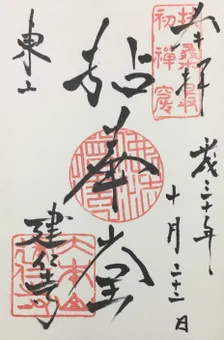 奉拝
扶桑最
初禅窟
歳三十年
十月二十二日
拈華堂
東山
建仁寺
大本山
建仁寺